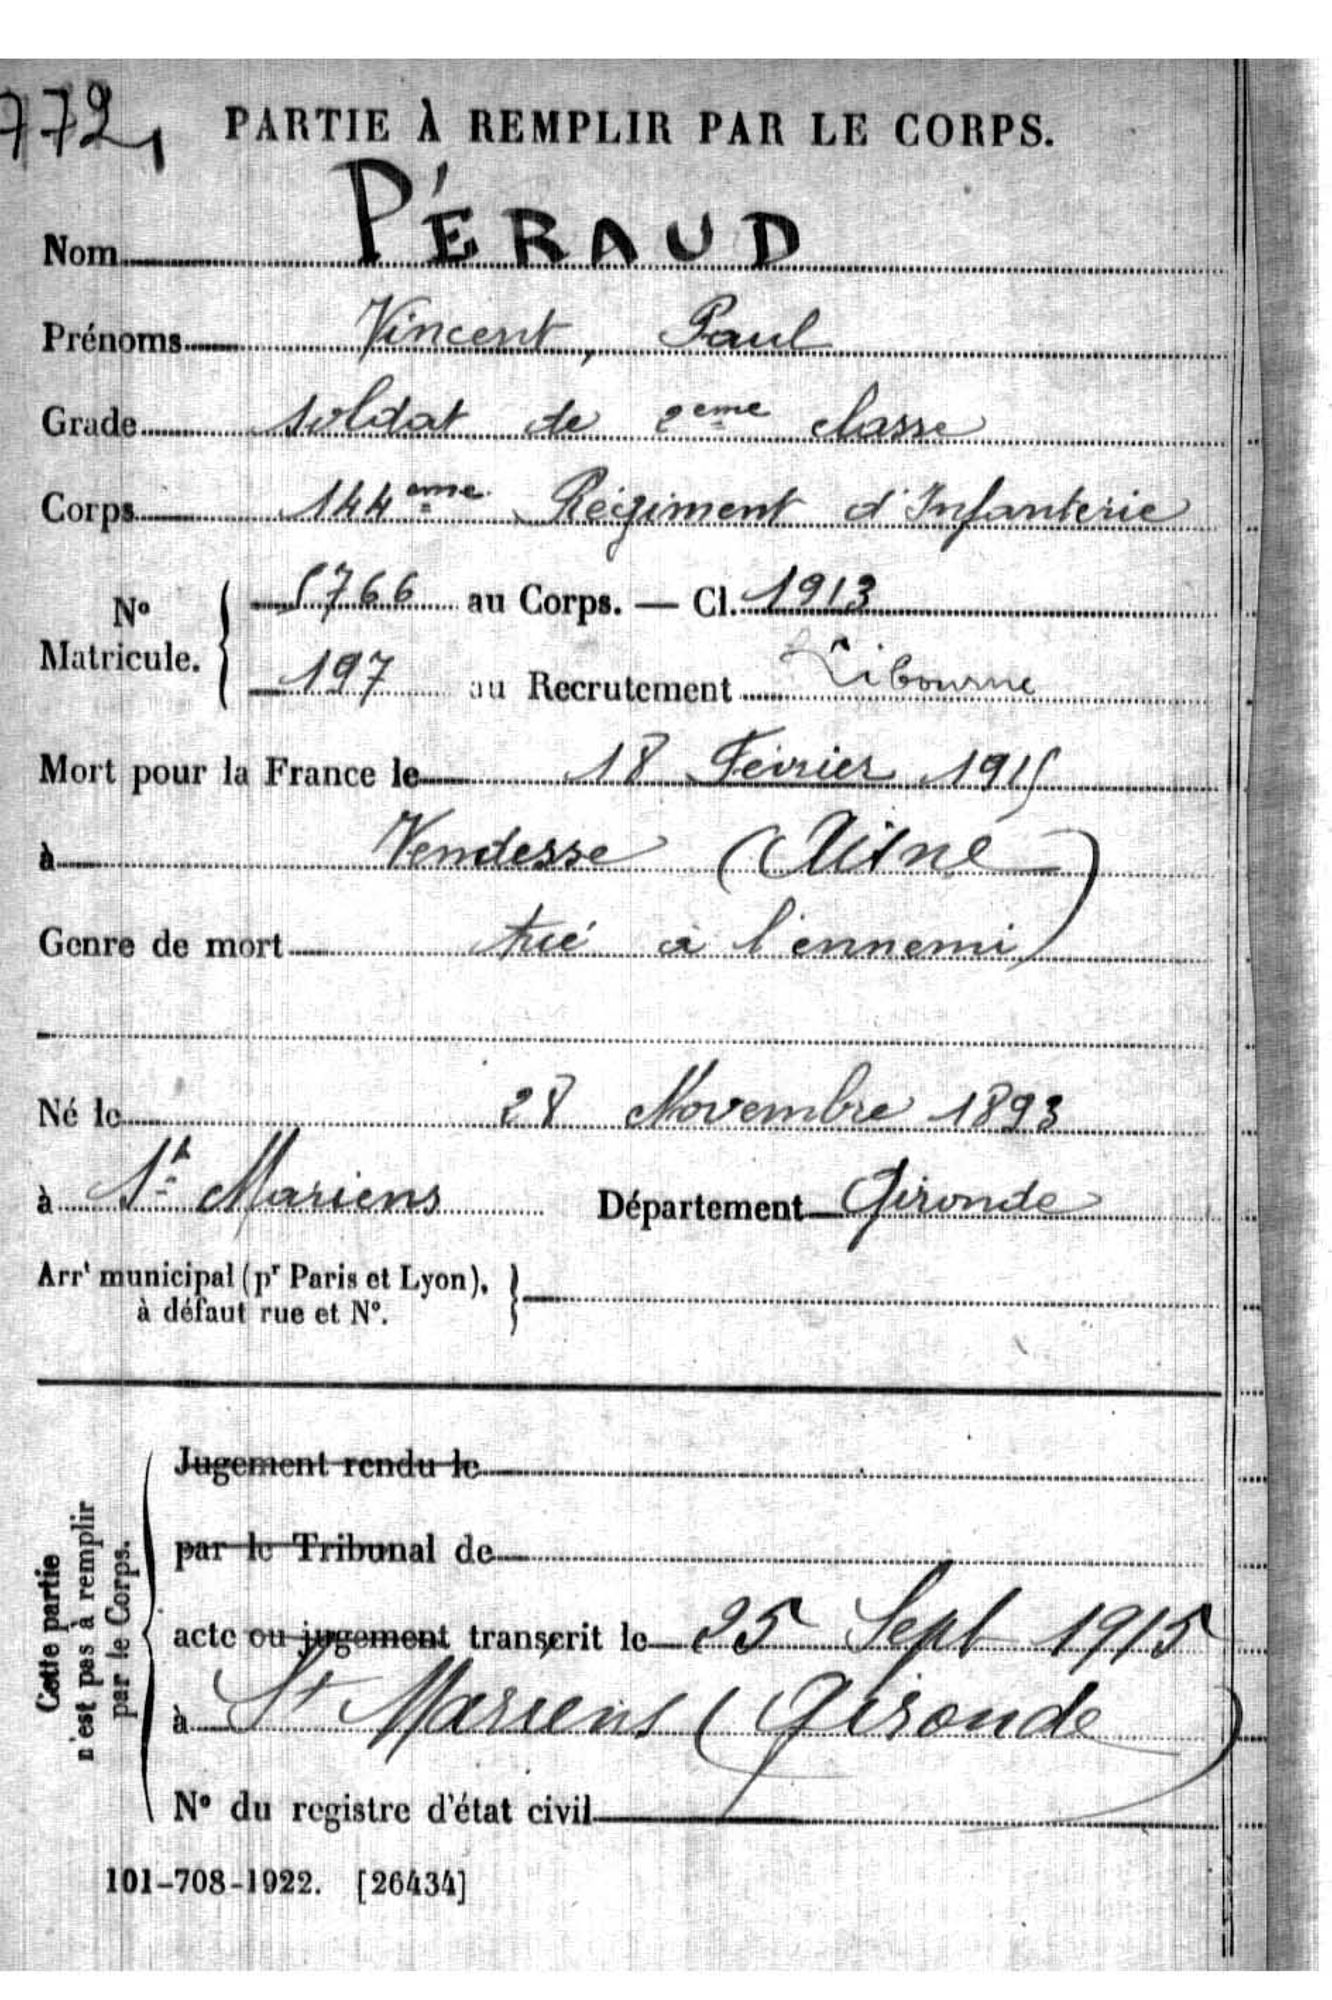 772
PARTIE À REMPLIR PAR LE CORPS.
Nom PÉRAUD
Prénoms Vincent, Paul
Grade soldat de 2eme classe
Corps 144eme Régiment d'Infanterie
No 5766 au Corps. — Cl. 1913
Matricule. 197 au Recrutement Libourne
Mort pour la France le 18 Février 1915
à Vendesse (Aisne)
Genre de mort tué à l'ennemi
Né le 28 Novembre 1893
à St Mariens Département Gironde
Arrt municipal (pr Paris et Lyon),
à défaut rue et No.
Jugement rendu le
par le Tribunal de
acte ou jugement transcrit le 25 Sept 1915
à St Mariens (Gironde)
No du registre d'état civil
Cette partie
n'est pas à remplir
par le Corps.
101-708-1922. [26434]